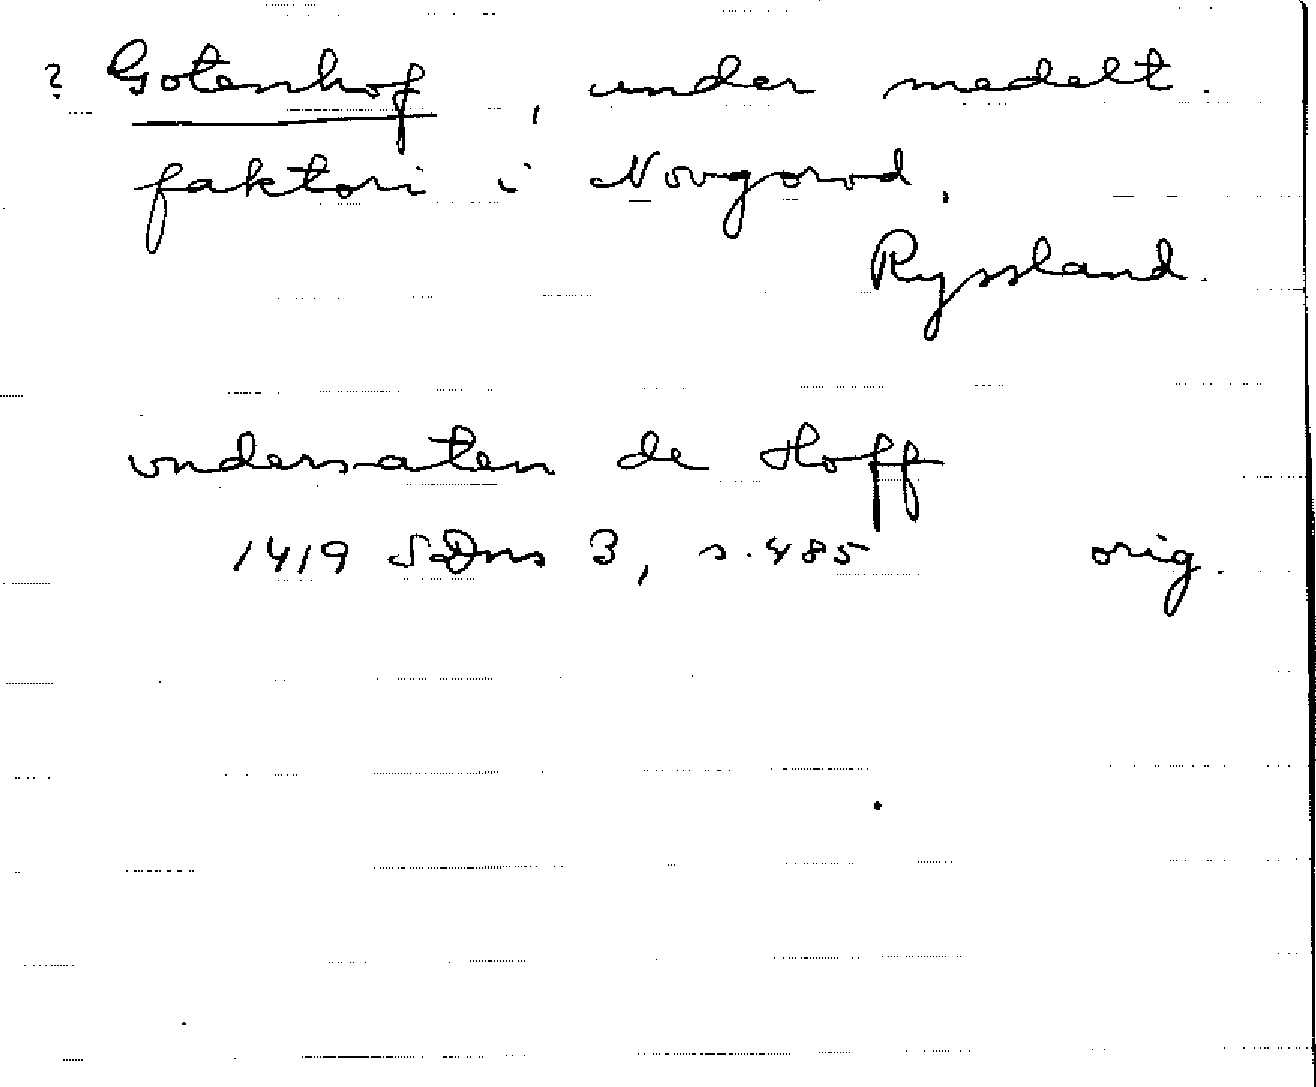 ? Gotenhof, under medelt.
faktori i Novgorod,
Ryssland.
vndersaten de Hoff
1419 SDns 3, s. 485 orig.